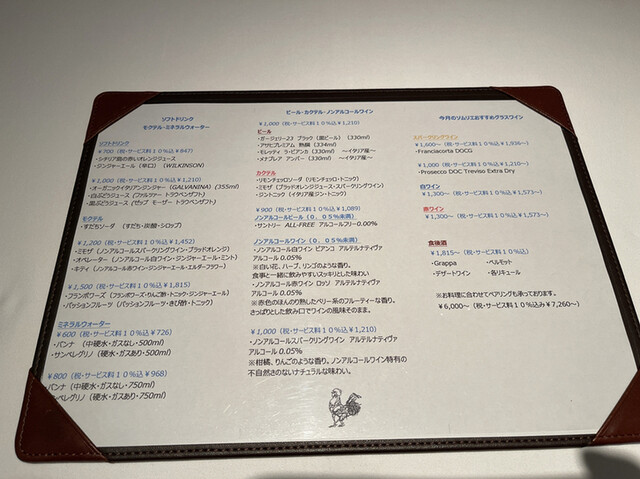 ソフトドリンク
モクテル・ミネラルウォーター
ソフトドリンク
¥700（税・サービス料10％込¥847）
・シチリア島の赤いオレンジジュース
・ジンジャーエール（辛口）（WILKINSON）
¥1,000（税・サービス料10％込¥1,210）
・オーガニックイタリアンジンジャー（GALVANINA）（355ml）
・白ぶどうジュース（ファルツァー トラウベンザフト）
・黒ぶどうジュース（ゼップ モーザー トラウベンザフト）
モクテル
・すだちソーダ（すだち・炭酸・シロップ）
¥1,200（税・サービス料10％込¥1,452）
・ミモザ（ノンアルコールスパークリングワイン・ブラッドオレンジ）
・オペレーター（ノンアルコール白ワイン・ジンジャーエール・ミント）
・キティ（ノンアルコール赤ワイン・ジンジャーエール・エルダーフラワー）
¥1,500（税・サービス料10％込¥1,815）
・フランボワーズ（フランボワーズ・りんご酢・トニック・ジンジャーエール）
・パッションフルーツ（パッションフルーツ・きび酢・トニック）
ミネラルウォーター
¥600（税・サービス料10％込¥726）
・パンナ（中硬水・ガスなし・500ml）
・サンペレグリノ（硬水・ガスあり・500ml）
¥800（税・サービス料10％込¥968）
・パンナ（中硬水・ガスなし・750ml）
・サンペレグリノ（硬水・ガスあり・750ml）
ビール・カクテル・ノンアルコールワイン
¥1,000（税・サービス料10％込¥1,210）
ビール
・ガージェリー23 ブラック（黒ビール）（330ml）
・アサヒプレミアム 熟撰（334ml）
・モレッティ ラ・ビアンカ（330ml） ～イタリア産～
・メナブレア アンバー（330ml） ～イタリア産～
カクテル
・リモンチェロソーダ（リモンチェロ・トニック）
・ミモザ（ブラッドオレンジジュース・スパークリングワイン）
・ジントニック（イタリア産ジン・トニック）
¥900（税・サービス料10％込¥1,089）
ノンアルコールビール（0.05％未満）
・サントリー ALL-FREE アルコールフリー0.00%
ノンアルコールワイン（0.05％未満）
・ノンアルコール白ワイン ビアンコ アルテルナティヴァ
アルコール0.05%
※白い花、ハーブ、リンゴのような香り。
食事と一緒に飲みやすいスッキリとした味わい
・ノンアルコール赤ワイン ロッソ アルテルナティヴァ
アルコール0.05%
※赤色のほんのり熟したベリー系のフルーティーな香り。
さっぱりとした飲み口でワインの風味そのまま。
¥1,000（税・サービス料10％込¥1,210）
・ノンアルコールスパークリングワイン アルテルナティヴァ
アルコール0.05%
※柑橘、りんごのような香り。ノンアルコールワイン特有の
不自然さのないナチュラルな味わい。
今月のソムリエおすすめグラスワイン
スパークリングワイン
¥1,600～（税・サービス料10％込¥1,936～）
・Franciacorta DOCG
¥1,000（税・サービス料10％込¥1,210～）
・Prosecco DOC Treviso Extra Dry
白ワイン
¥1,300～（税・サービス料10％込¥1,573～）
赤ワイン
¥1,300～（税・サービス料10％込¥1,573～）
食後酒
¥1,815～（税・サービス料10％込）
・Grappa ・ベルモット
・デザートワイン ・各リキュール
※お料理に合わせてペアリングも承っております。
¥6,000～（税・サービス料10％込み¥7,260～）